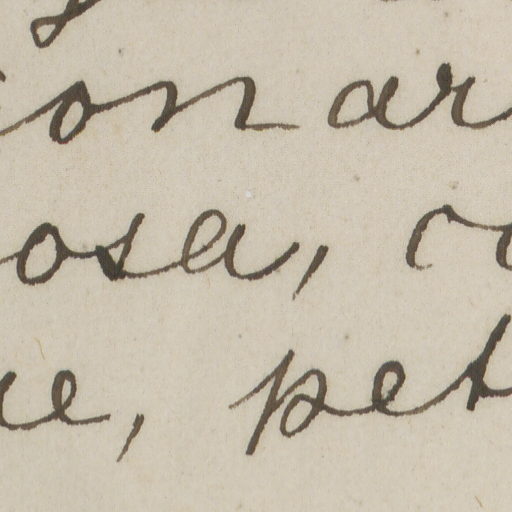 on ar
osa, co
ue, pet